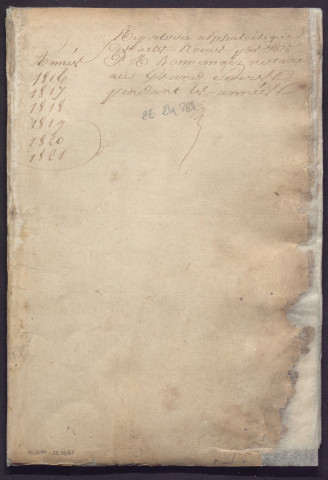 Répertoire alphabétique
des actes Reçus par M.e
Bonnemaiz notaire
au Grand
pendant les années
Années
1816
1817
1818
1819
1820
1821
2E 24